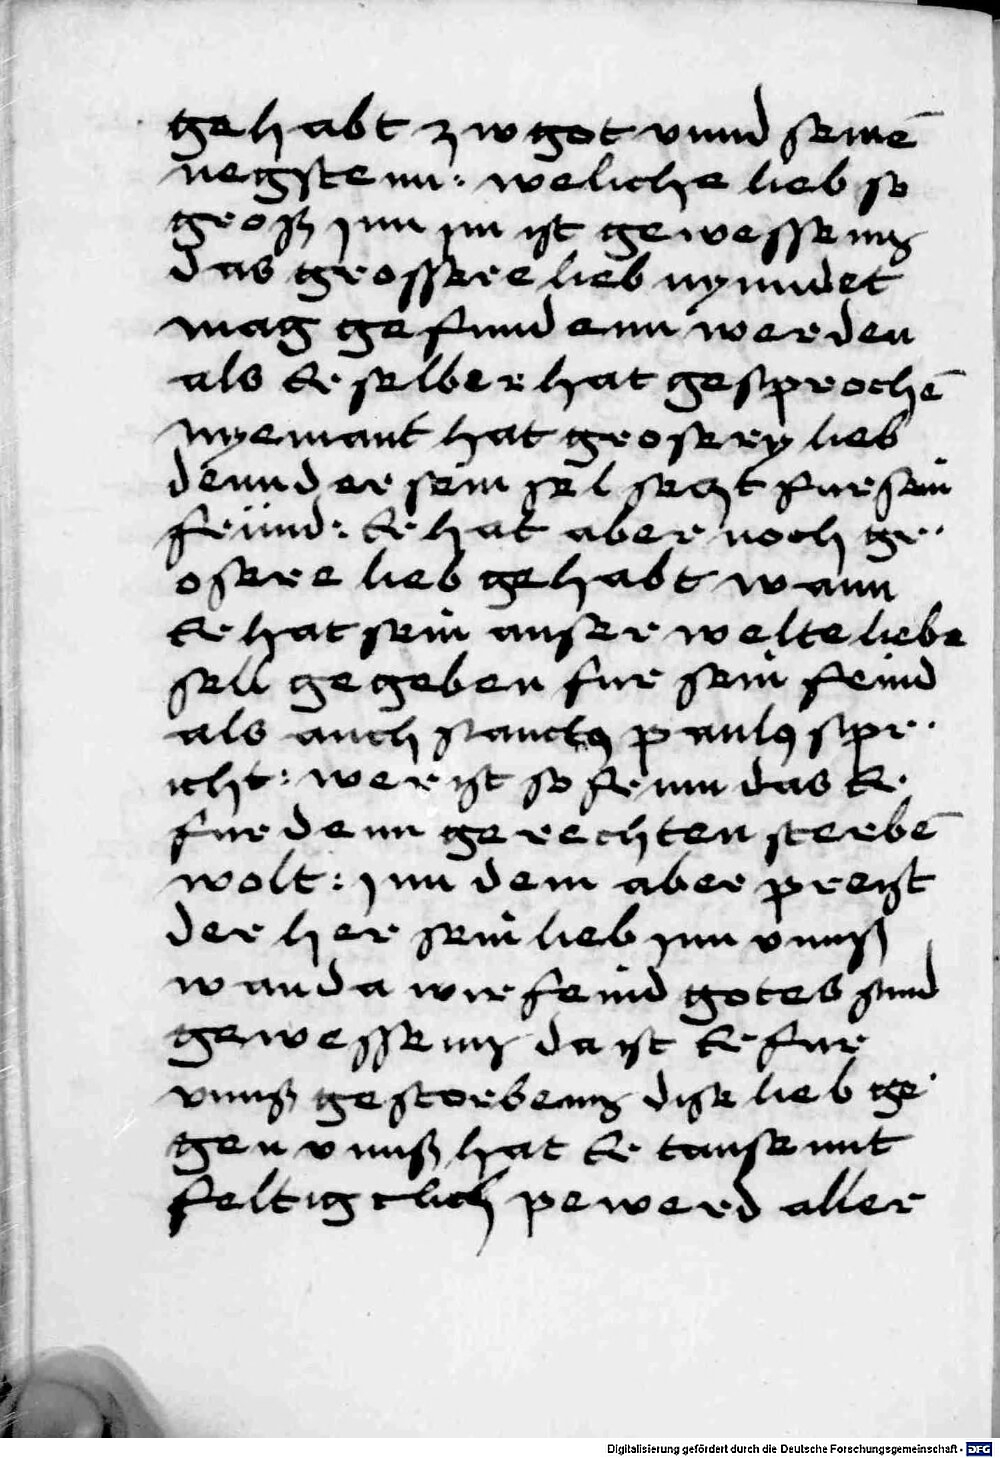 gehabt zw got vnnd seinē
negstenn: weliche lieb so
groß jnn jm ist gewessenn
das grossere lieb nynndet
mag gefunndenn werden
als Er selber hat gesprochē
Nyemant hat grosery lieb
dennd er sein sel seczt fur sein
freünd: Er hat aber noch gr·
osere lieb gehabt wann
Er hat sein auserwelte liebe
sell gegeben fur sein feind
als auch sanctus paulus spr·
icht: wer ist so frum das Er
fur denn gerechten sterbē
wolt: jnn dem aber preist
der her sein lieb jnn vnnß
wan da wir feind gotes sind
gewessenn da ist Er fur
vnnß gestorbenn dise lieb ge·
gen vnnß hat Er tausennt
feltigclich pewerd aller
Digitalisierung gefördert durch die Deutsche Forschungsgemeinschaft - DFG